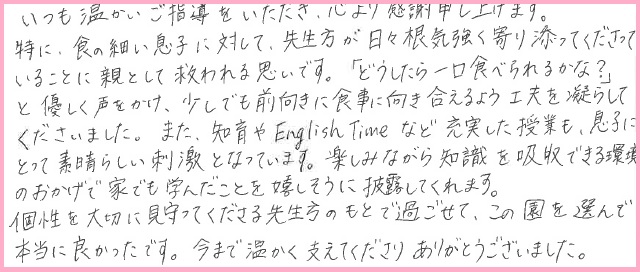 いつも温かいご指導をいただき、心より感謝申し上げます。
特に、食の細い息子に対して、先生方が日々根気強く寄り添ってくださって
いることに親として救われる思いです。「どうしたら一口食べられるかな?」
と優しく声をかけ、少しでも前向きに食事に向き合えるよう工夫を凝らして
くださいました。また、知育やEnglish Timeなど充実した授業も、息子に
とって素晴らしい刺激となっています。楽しみながら知識を吸収できる環境
のおかげで家でも学んだことを嬉しそうに披露してくれます。
個性を大切に見守ってくださる先生方のもとで過ごせて、この園を選んで
本当に良かったです。今まで温かく支えてくださりありがとうございました。